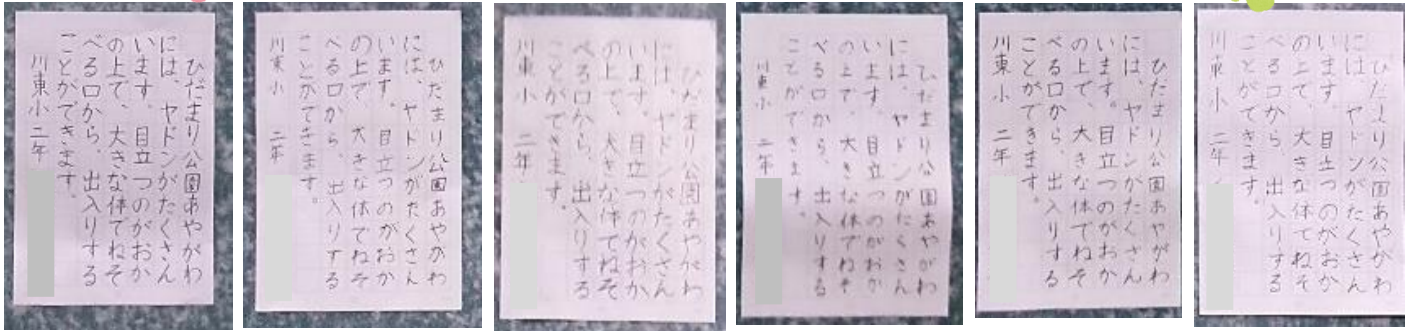 ひだまり公園あやがわ
には、ヤドンがたくさん
います。目立つのがおか
の上で、大きな体でねそ
べる口から、出入りする
ことができます。
川東小 二年
ひだまり公園あやがわ
には、ヤドンがたくさん
います。目立つのがおか
の上で、大きな体でねそ
べる口から、出入りする
ことができます。
川東小 二年
ひだまり公園あやがわ
には、ヤドンがたくさん
います。目立つのがおか
の上で、大きな体でねそ
べる口から、出入りする
ことができます。
川東小 二年
ひだまり公園あやがわ
には、ヤドンがたくさん
います。目立つのがおか
の上で、大きな体でねそ
べる口から、出入りする
ことができます。
川東小 二年
ひだまり公園あやがわ
には、ヤドンがたくさん
います。目立つのがおか
の上で、大きな体でねそ
べる口から、出入りする
ことができます。
川東小 二年
ひだまり公園あやがわ
には、ヤドンがたくさん
います。目立つのがおか
の上で、大きな体でねそ
べる口から、出入りする
ことができます。
川東小 二年